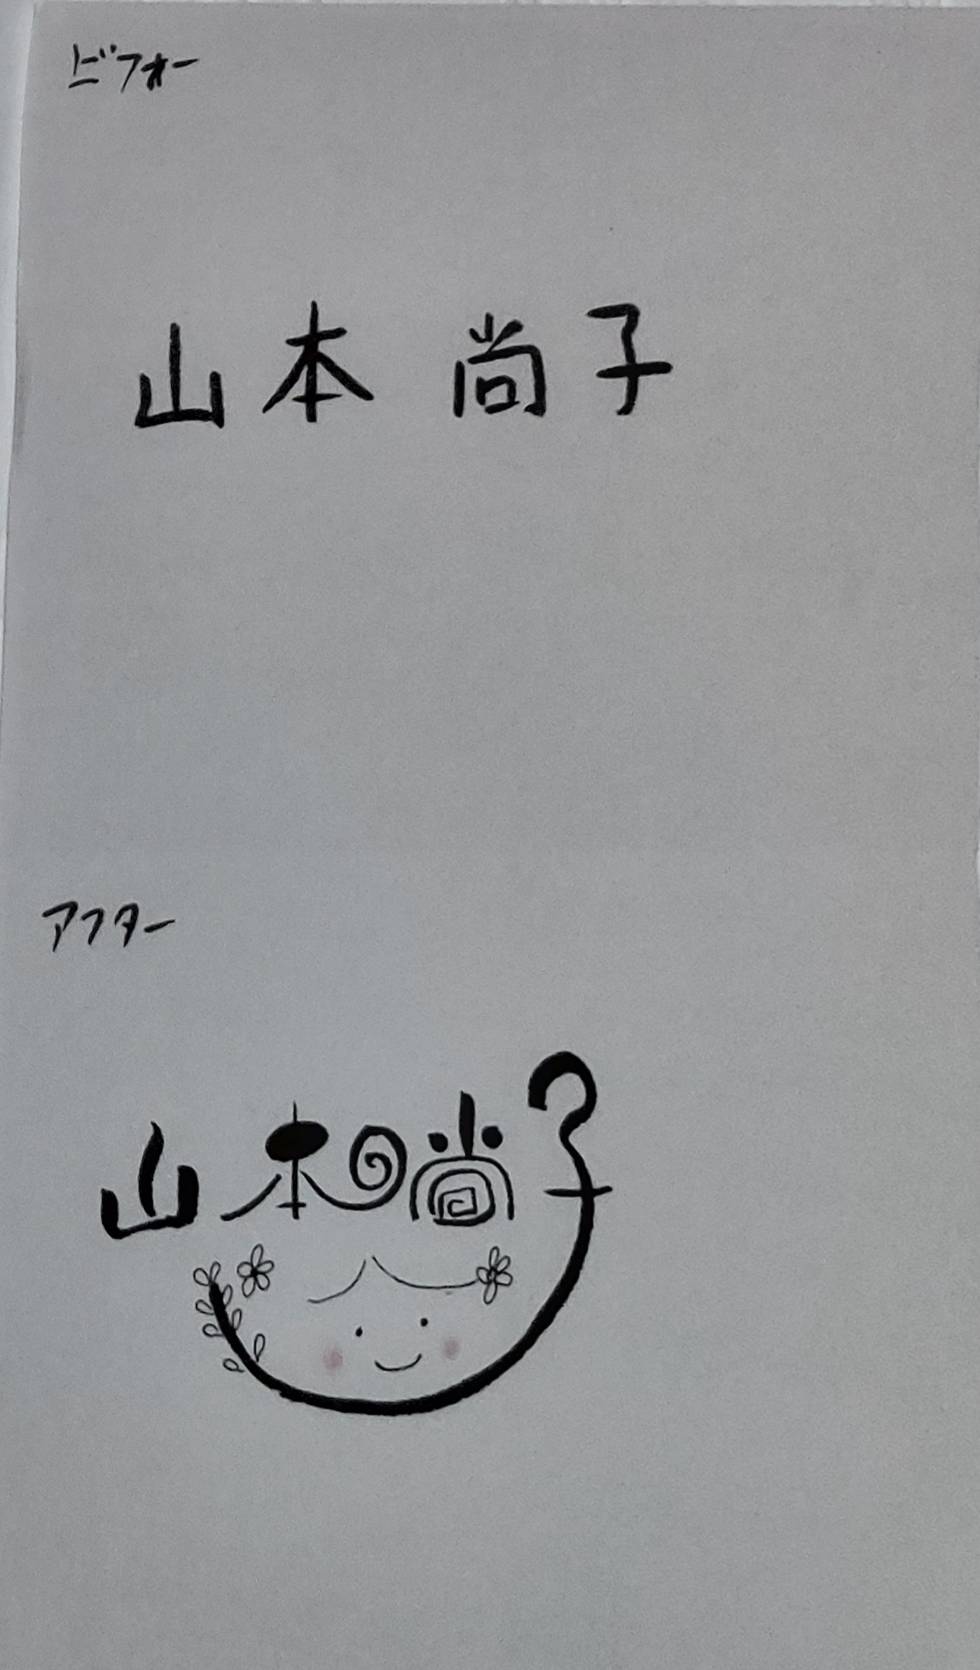 ビフォー
山本 尚子
アフター
山本尚子